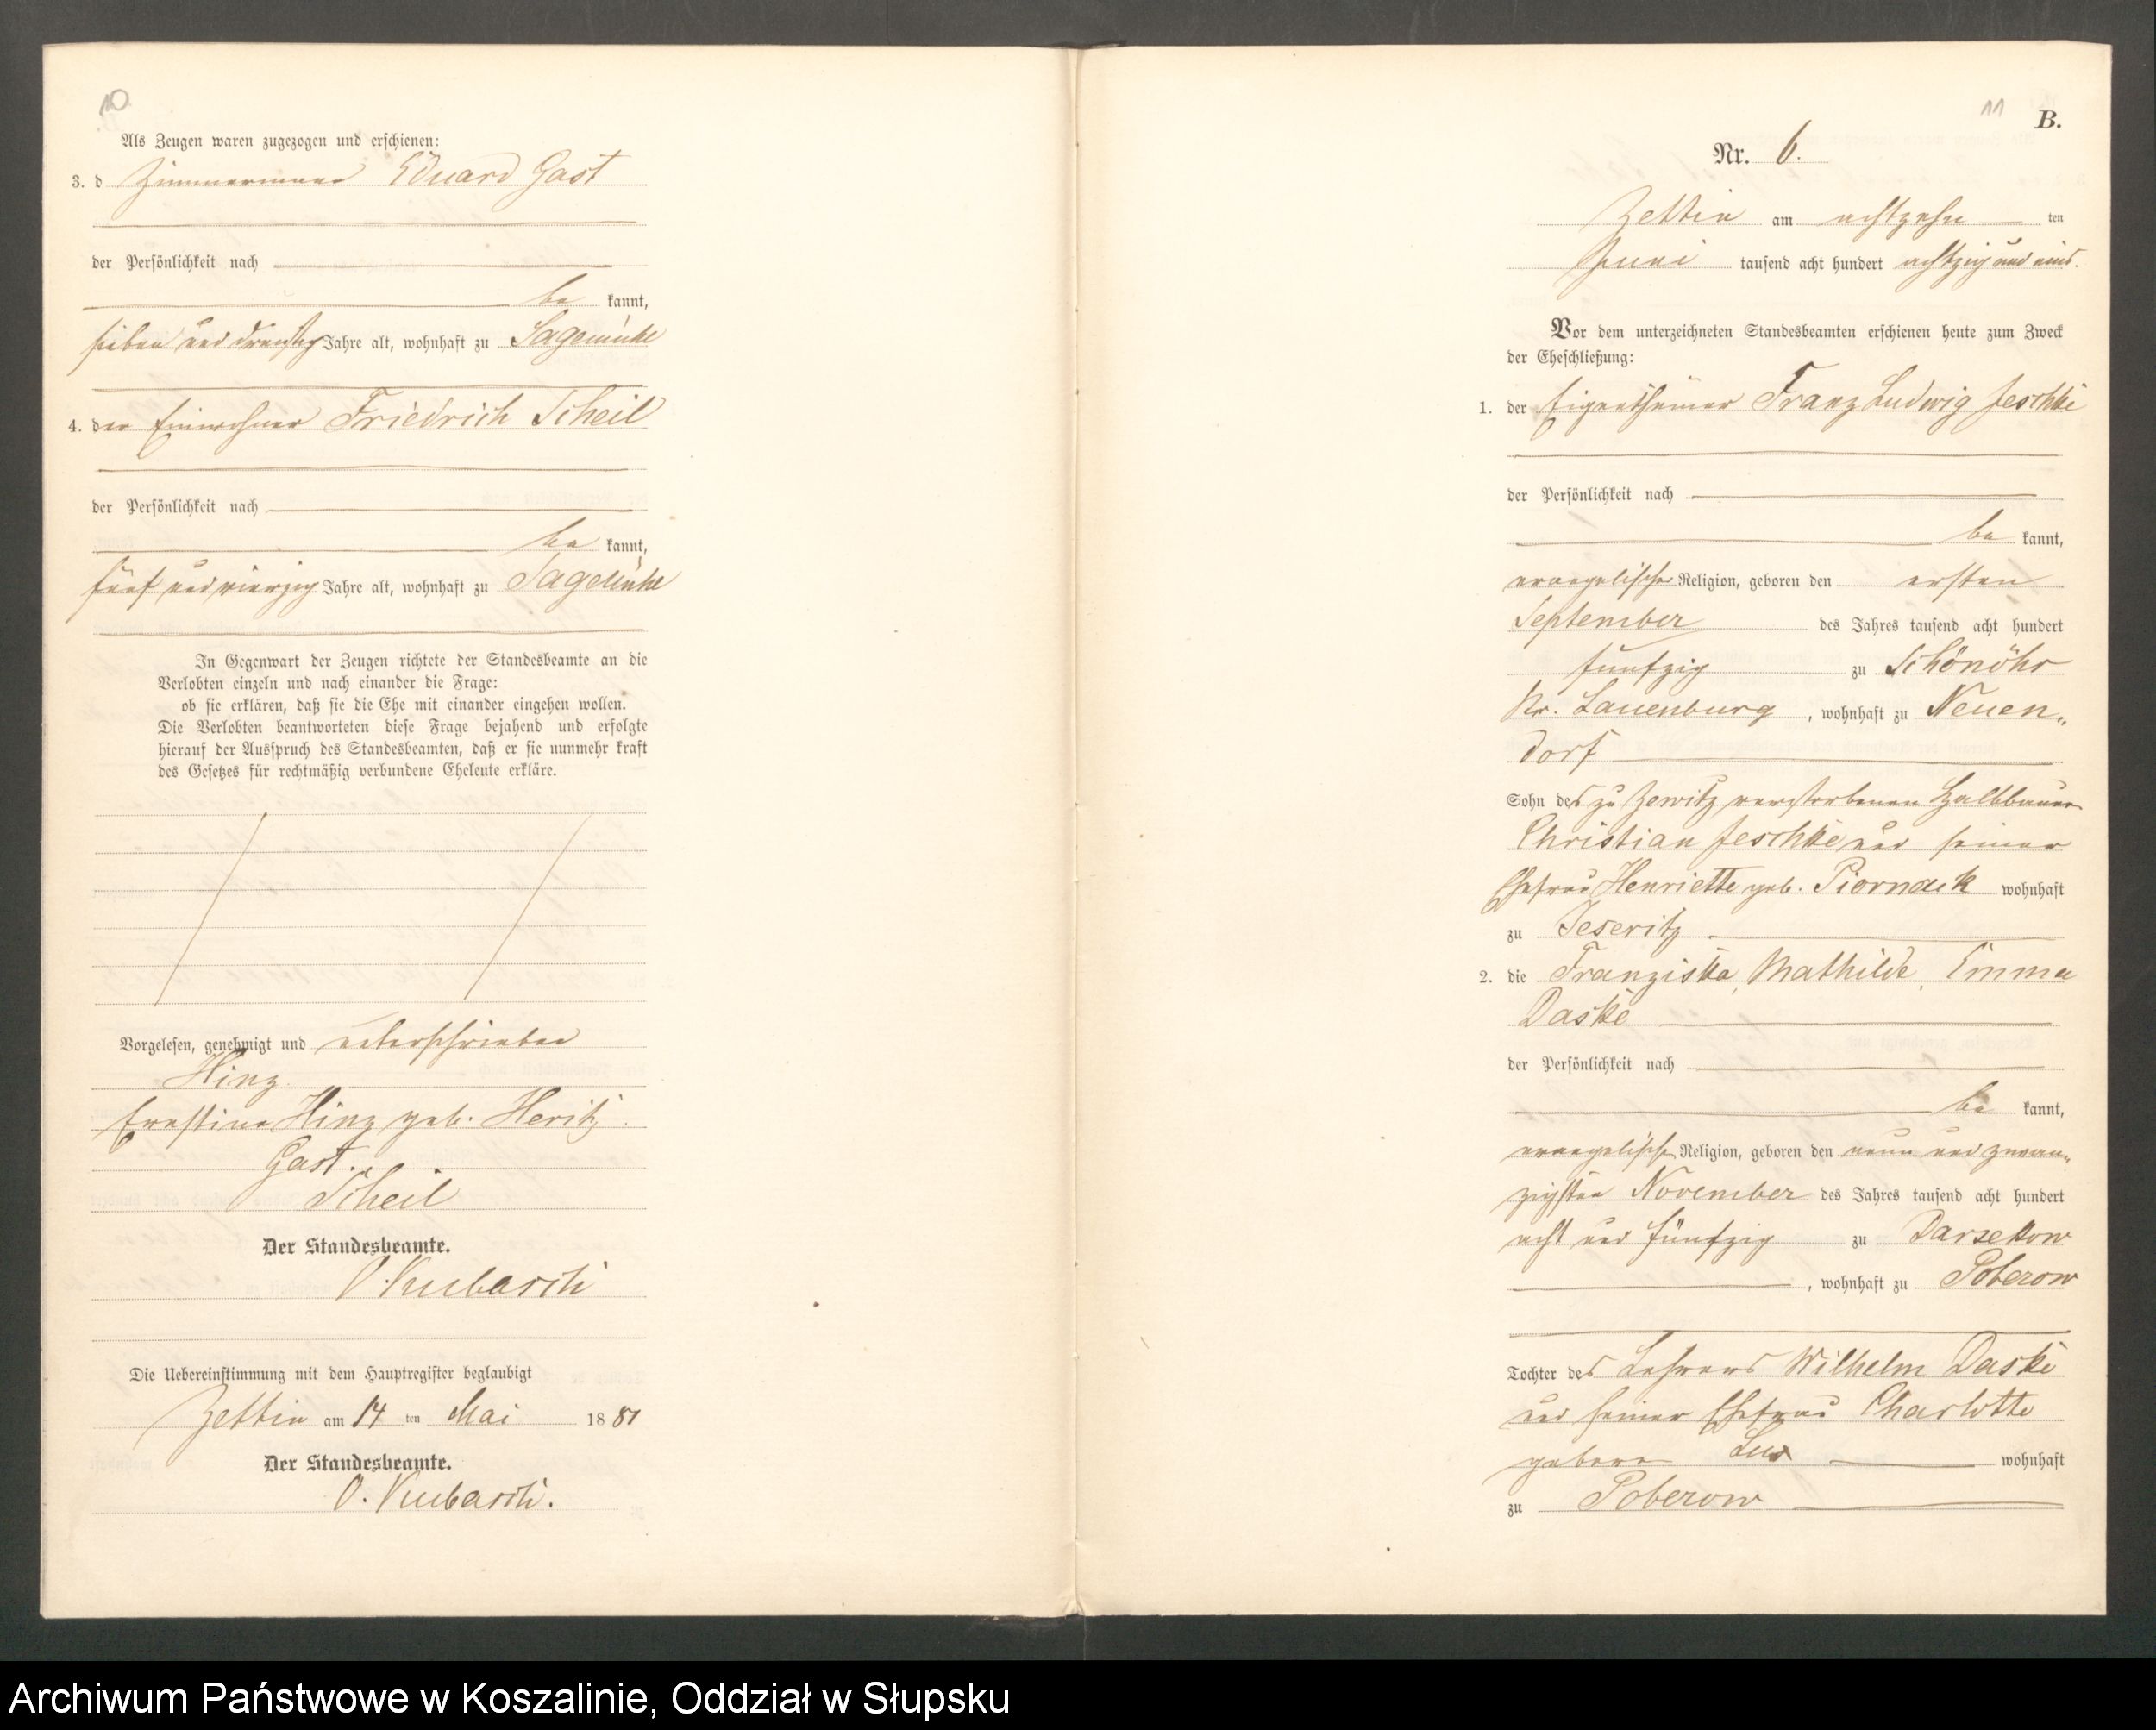 10
Als Zeugen waren zugezogen und erschienen:
3. d Zimmermann Eduard Gast
der Persönlichkeit nach
be kannt,
sieben und dreißig Jahre alt, wohnhaft zu Sagemühle
4. der Einwohner Friedrich Scheil
der Persönlichkeit nach
be kannt,
fünf und vierzig Jahre alt, wohnhaft zu Sagemühle
In Gegenwart der Zeugen richtete der Standesbeamte an die
Verlobten einzeln und nach einander die Frage:
ob sie erklären, daß sie die Ehe mit einander eingehen wollen.
Die Verlobten beantworteten diese Frage bejahend und erfolgte
hierauf der Ausspruch des Standesbeamten, daß er sie nunmehr kraft
des Gesetzes für rechtmäßig verbundene Eheleute erkläre.
Vorgelesen, genehmigt und unterschrieben
Hinz
Ernstine Hinz geb. Heritz.
Gast.
Scheil
Der Standesbeamte.
O. Kubasch
Die Uebereinstimmung mit dem Hauptregister beglaubigt
Zettin am 14 ten Mai 18 81
Der Standesbeamte.
O. Kubasch.
11
B.
Nr. 6.
Zettin am achtzehn ten
Juni tausend acht hundert achtzig und eins.
Vor dem unterzeichneten Standesbeamten erschienen heute zum Zweck
der Eheschließung:
1. der Eigenthümer Franz Ludwig Jeschke
der Persönlichkeit nach
be kannt,
evangelischer Religion, geboren den ersten
September des Jahres tausend acht hundert
fünfzig zu Schönöhr
Kr. Lauenburg, wohnhaft zu Neuen„
dorf
Sohn des zu Zewitz verstorbenen Halbbauer
Christian Jeschke und seiner
Ehefrau Henriette geb. Piornack wohnhaft
zu Jeseritz
2. die Franziska, Mathilde, Emma
Daske
der Persönlichkeit nach
be kannt,
evangelischer Religion, geboren den neun und zwan„
zigsten November des Jahres tausend acht hundert
acht und fünfzig zu Darsekow
, wohnhaft zu Poberow
Tochter des Lehrers Wilhelm Daske
und seiner Ehefrau Charlotte
geboren wohnhaft
zu Poberow
Archiwum Państwowe w Koszalinie, Oddział w Słupsku